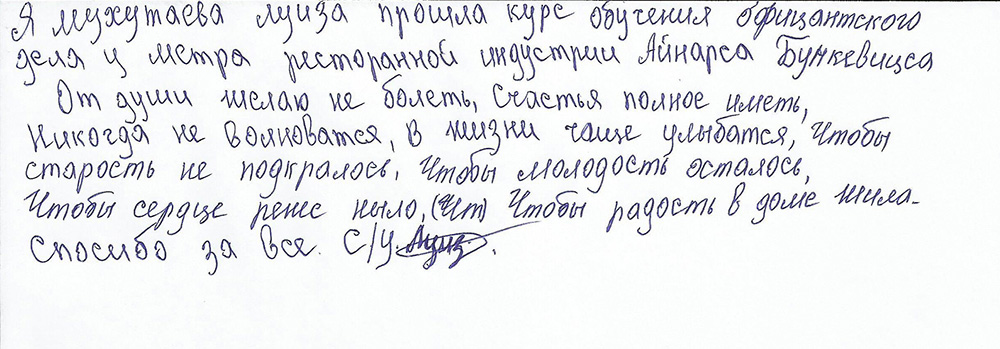 Я мухутаева луиза прошла курс обучения официантского
деля у метра ресторанной индустрии Айнарса Бункевицса
От души желаю не болеть, Счастья полное иметь,
Никогда не волноватся, в жизни чаще улыбатся, Чтобы
старость не подкралось, Чтобы молодость осталось,
Чтобы сердце реже ныло, (Чт) Чтобы радость в доме жила.
Спосибо за все. С/У